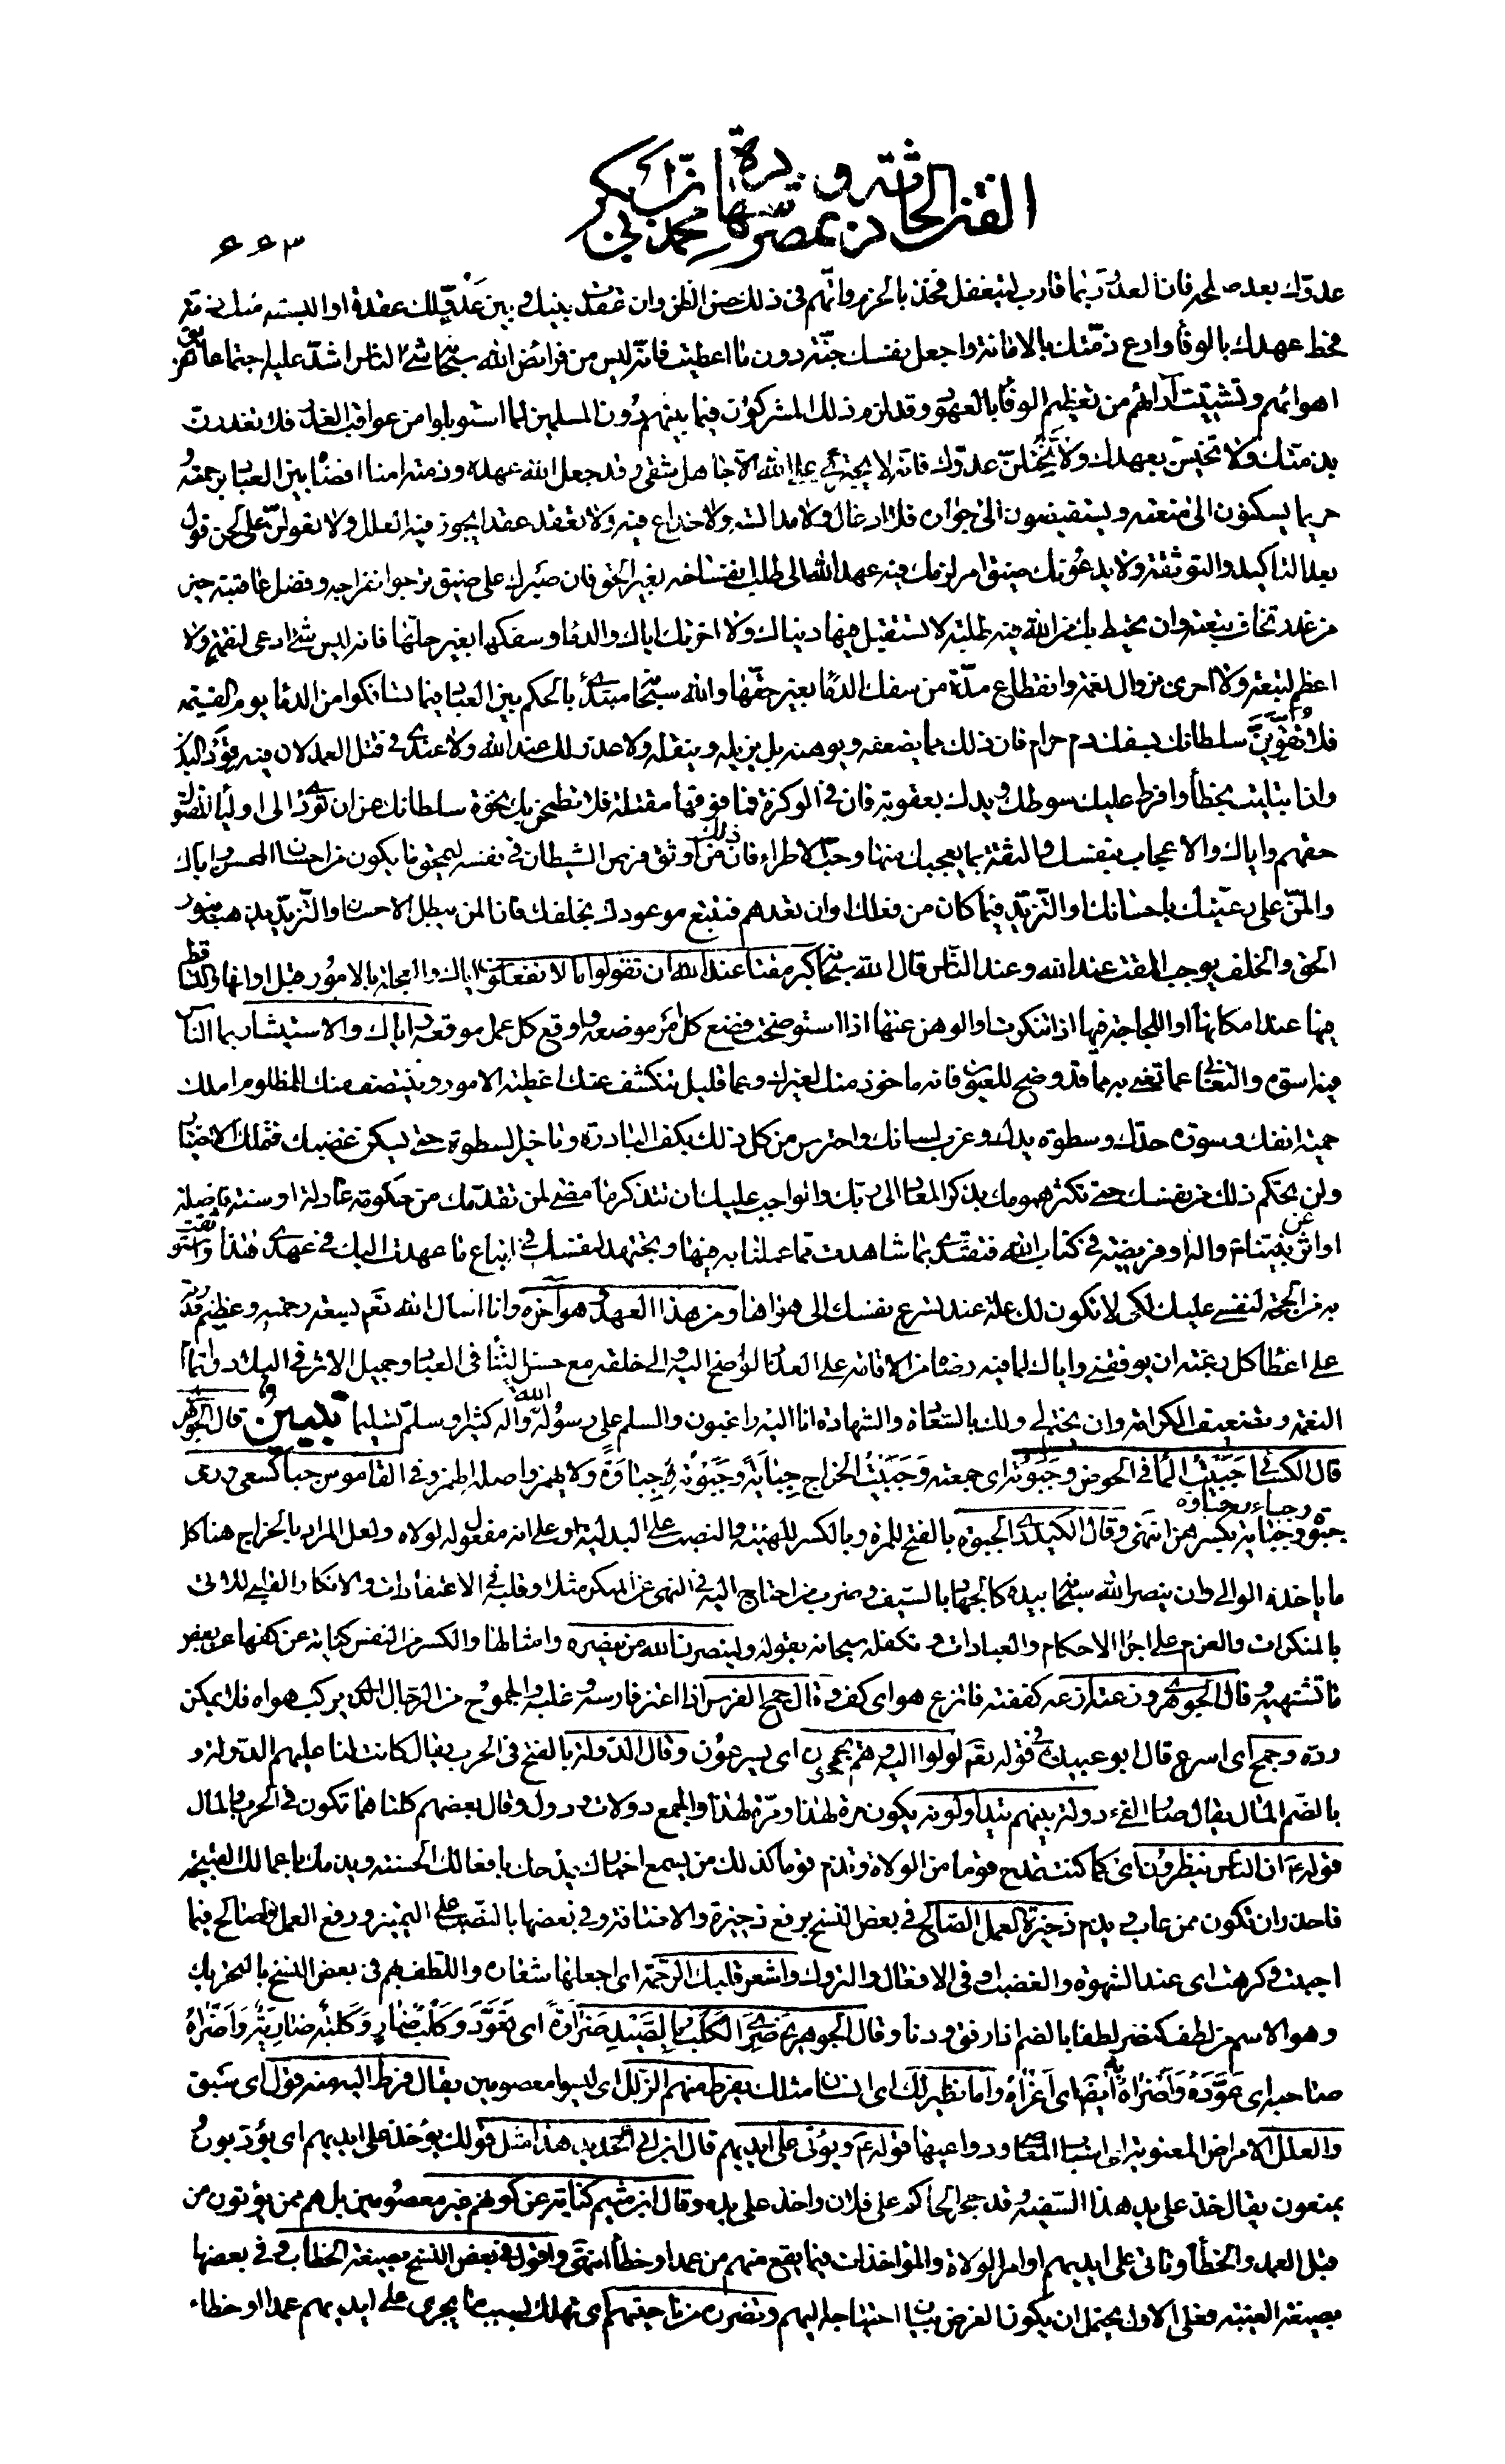 الفتن الحادثة بمصر وشهادة محمد بن أبي بكر
٦٦٣
عدوّك بعد صلحه فان العدوّ ربّما قارب ليتغفل فخذ بالحزم واتّهم فى ذلك حسن الظن وان عقدت بينك وبين عدوّ لك عقدة او البسته منك ذمّة
فحط عهدك بالوفاء وارع ذمّتك بالامانة واجعل نفسك جنّة دون ما اعطيت فانّه ليس من فرائض الله سبحانه شئ الناس اشدّ عليه اجتماعا مع تفرق
اهوائهم وتشتيت آرائهم من تعظيم الوفاء بالعهود وقد لزم ذلك المشركون فيما بينهم دون المسلمين لما استوبلوا من عواقب الغدر فلا تغدرن
بذمتك ولا تخيسنّ بعهدك ولا تختلنّ عدوّك فانّه لا يجترئ على الله الّا جاهل شقى وقد جعل الله عهده وذمته امنا افضاه بين العباد برحمته و
حريما يسكنون الى منعته ويستفيضون الى جواره فلا ادغال ولا مدالسة ولا خداع فيه ولا تعقد عقدا يجوز فيه العلل ولا تعولنّ على لحن قول
بعد التاكيد والتوثقة ولا يدعونك ضيق امر لزمك فيه عهد الله الى طلب انفساخه بغير الحق فان صبرك على ضيق ترجوا انفراجه وفضل عاقبته خير
من غدر تخاف تبعته وان تحيط بك من الله فيه طلبة لا تستقيل فيها دنياك ولا اخرتك اياك والدماء وسفكها بغير حلّها فانه ليس شئ ادعى لنقمة ولا
اعظم لتبعة ولا احرى بزوال نعمة وانقطاع مدّة من سفك الدماء بغير حقّها والله سبحانه مبتدئ بالحكم بين العباد فيما تسافكوا من الدماء يوم القيمة
فلا تقوّينّ سلطانك بسفك دم حرام فان ذلك مما يضعفه ويوهنه بل يزيله وينقله ولا عذر لك عند الله ولا عندى فى قتل العمد لان فيه قود البدن
وان ابتليت بخطأ وافرط عليك سوطك ويدك بعقوبة فان فى الوكزة فما فوقها مقتلة فلا تطمحن بك نخوة سلطانك عن ان تؤدّى الى اولياء المقتول
حقهم واياك والاعجاب بنفسك والثقة بما يعجبك منها وحبّ الاطراء فان ذلك من اوثق فرص الشيطان فى نفسه ليمحق ما يكون من احسان المحسن واياك
والمنّ على رعيّتك باحسانك او التّزيّد فيما كان من فعلك او ان تعدهم فتتبع موعودك بخلفك فان المن يبطل الاحسان والتّزيّد يذهب بنور
الحق والخلف يوجب المقت عند الله وعند النّاس قال الله سبحانه كبر مقتا عند الله ان تقولوا ما لا تفعلون اياك والعجلة بالامور قبل اوانها والتساقط
فيها عند امكانها او اللجاجة فيها اذا تنكرت او الوهن عنها اذا استوضحت فضع كل امر موضعه واوقع كل عمل موقعه واياك والاستيثار بما الناس
فيه اسوة والتغابى عما تعنى به مما قد وضح للعيون فانه ماخوذ منك لغيرك وعما قليل تنكشف عنك اغطية الامور وينتصف منك للمظلوم املك
حمية انفك وسورة حدّك وسطوة يدك وغرب لسانك واحترس من كل ذلك بكف البادرة وتاخير السطوة حتى يسكن غضبك فتملك الاختيار
ولن تحكم ذلك من نفسك حتى تكثر همومك بذكر المعاد الى ربّك والواجب عليك ان تتذكر ما مضى لمن تقدّمك من حكومة عادلة او سنة فاضلة
او اثر عن نبيّنا صلى الله عليه واله او فريضة فى كتاب الله فتقتدى بما شاهدت مما عملنا به فيها وتجتهد لنفسك فى اتباع ما عهدت اليك فى عهدى هذا واستوثقت
به من الحجة لنفسى عليك لكى لا تكون لك علة عند تسرع نفسك الى هواها ومن هذا العهد وهو آخره وانا اسال الله تعم بسعة رحمته وعظيم قدرته
على اعطاء كل رغبة ان يوفقنى واياك لما فيه رضاه من الاقامة على العذر الواضح اليه والى خلقه مع حسن الثناء فى العباد وجميل الاثر فى البلاد وتمام
النعمة وتضعيف الكرامة وان يختم لى ولك بالسّعادة والشهادة انا اليه راغبون والسلم على رسول الله واله كثيرا وسلم تسليما تبيين قال الجوهرى
قال الكسائى جَبَيْتُ الماء فى الحوض وجَبَوْتُه اى جمعته وَجَبَيْتُ الخراج جِبَايَةً وَجَبَوْتُه جِبَاوَةً ولا يهمز واصله الهمز وفى القاموس جبا كسعى ورمى
جبوة وجباء وجباوة وجباية بكسرهن انتهى وقال الكيدرى الجبوة بالفتح للمرة وبالكسر للهيئة والنصب على البدلية او على انه مفعول له لولاه ولعل المراد بالخراج هنا كل
ما ياخذه الوالى وان ينصر الله سبحانه بيده كالجهاد بالسيف وضرب من احتاج اليه فى النهى عن المنكر مثلا وقلبه فى الاعتقادات والانكار القلبى للاتى
بالمنكرات والعزم على اجراء الاحكام والعبادات وتكفله سبحانه بقوله ولينصرن الله من ينصره وامثالها والكسر من النفس كناية عن كفها عن بعض
ما تشتهيه وقال الجوهرى وزعته ازعه كففته فاتزع هو اى كف وقال جمح الفرس اذا اعتز فارسه وغلبه والجموح من الرجال الذى يركب هواه فلا يمكن
ردّه وجمح اى اسرع قال ابو عبيدة فى قوله تعم لولوا اليه وهم يجمحون اى يسرعون وقال الدولة بالفتح فى الحرب يقال كانت لنا عليهم الدولة و
بالضّم المال يقال صار الفئ دولة بينهم يتداولونه يكون مرة لهذا ومرّة لهذا والجمع دولات ودول وقال بعضهم كلتاهما تكون فى الحرب والمال
قوله ع ان الناس ينظرون اى كما كنت تمدح قوما من الولاة وتذم قوما كذلك من يسمع اخبارك يمدحك بافعالك الحسنة ويذمك باعمالك القبيحة
فاحذر ان تكون ممن عاب ويذم ذخيرة العمل الصّالح فى بعض النسخ برفع ذخيرة والاضافة وفى بعضها بالنصب على التميز ورفع العمل والصالح فيما
احببت وكرهت اى عند الشهوة والغضب او فى الافعال والتروك واشعر قلبك الرّحمة اى اجعلها شعاره واللطف بهم فى بعض النسخ بالتحريك
وهو الاسم من لطف كنصر لطفا بالضم اذا رفق ودنا وقال الجوهرى ضَرِىَ الكلب بالصّيد ضَرَاوَةً اى تَعَوَّدَ وكَلْبٌ ضَارٍ وكَلْبَةٌ ضَارِيَةٌ وَاَضْرَاهُ
صاحبه اى عَوَّدَهُ وَاَضْرَاهُ به ايضا اى اَغْرَاهُ واما نظير لك اى انسان مثلك يفرط منهم الزلل اى ليسوا معصومين يقال فرط اليه منه قول اى سبق
والعلل الامراض المعنوية اى اسباب المعاصى ودواعيها قوله ع ويؤتى على ايديهم قال ابن ابى الحديد هذا مثل قولك يؤخذ على ايديهم اى يؤدبون و
يمنعون يقال خذ على يد هذا السّفيه وقد حجر الحاكم على فلان واخذ على يده وقال ابن ميثم كناية عن كونهم غير معصومين بل هم ممن يؤتون من
قبل العمد والخطأ وتاتى على ايديهم اوامر الولاة والمؤاخذات فيما يقع منهم من عمد او خطأ انتهى واقول فى بعض النسخ بصيغة الخطاب وفى بعضها
بصيغة الغيبة فعلى الاول يحتمل ان يكون الغرض بيان احتياجه اليهم وتضرره من ناحيتهم اى تهلك بسبب ما يجرى على ايديهم عمدا او خطاء